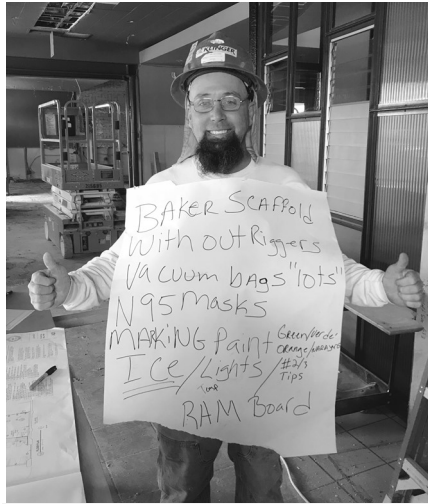 KLINGER
BAKER Scaffold
With out Riggers
Vacuum bags "lots"
N95 Masks
MARKING Paint
Green/verde
ORANGE/
ICe/Lights/
#2/3
Tips
RAM Board